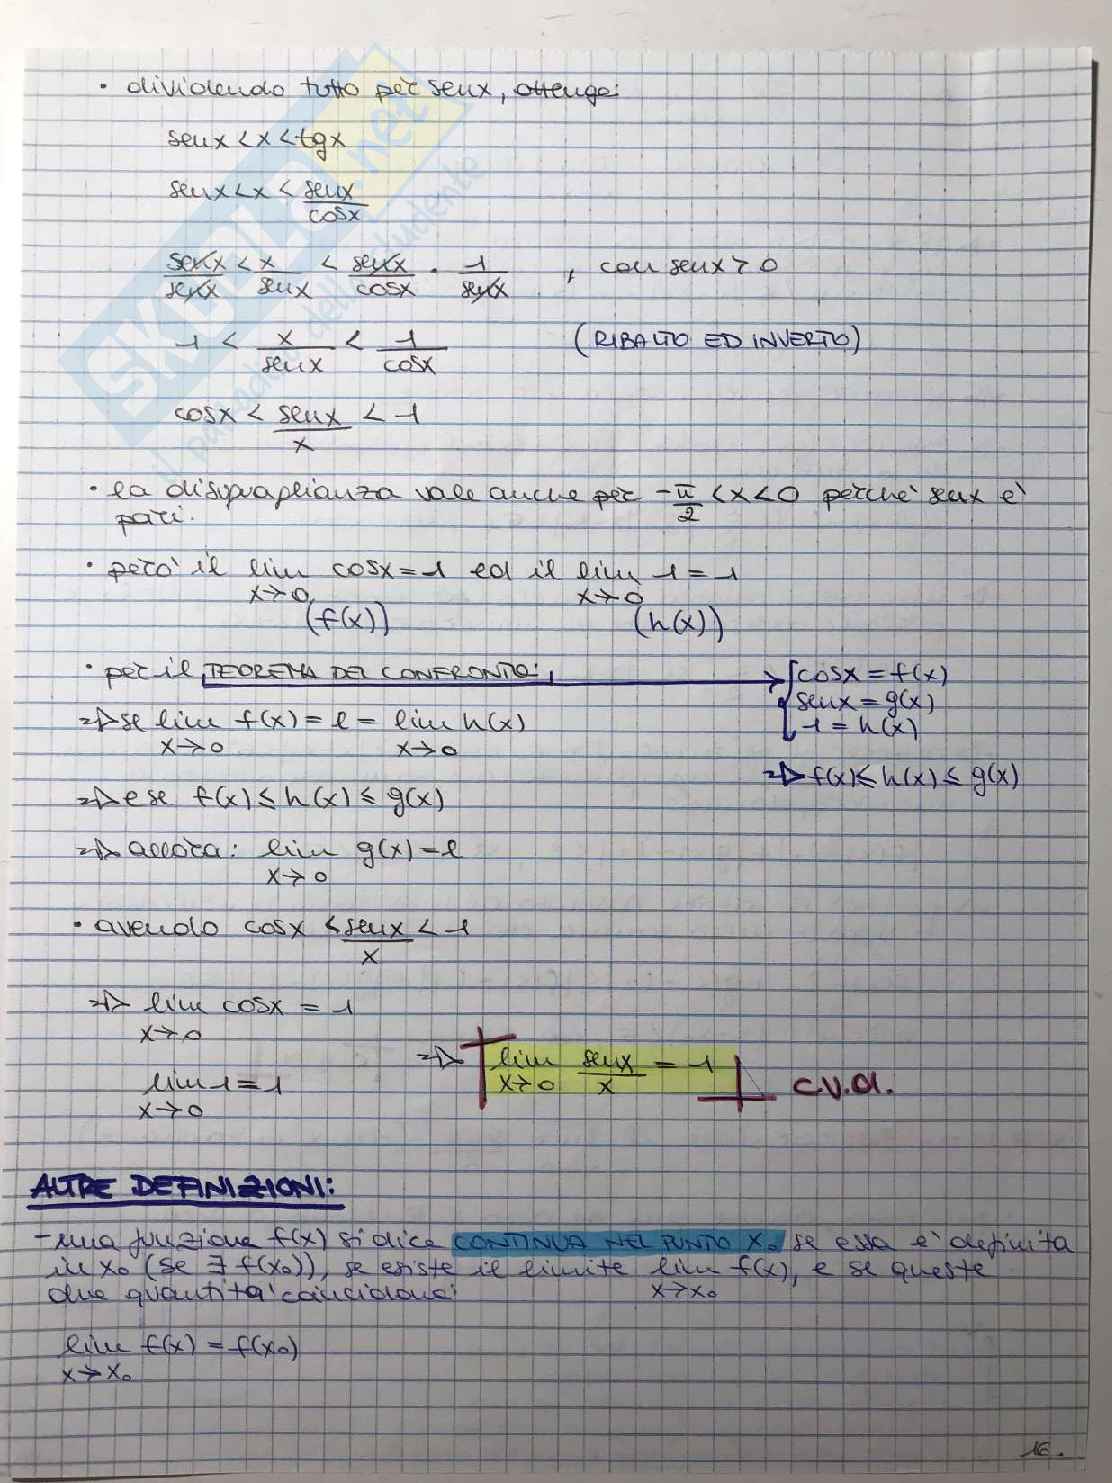 • dividendo tutto per senx, ottengo:
senx < x < tgx
senx < x < senx/cosx
senx/senx < x/senx < senx/cosx · 1/senx , con senx > 0
1 < x/senx < 1/cosx (RIBALTO ED INVERTO)
cosx < senx/x < 1
• la disuguaglianza vale anche per -π/2 < x < 0 perchè senx è
pari.
• però il lim cosx = 1 ed il lim 1 = 1
x→0 x→0
(f(x)) (h(x))
• per il TEOREMA DEL CONFRONTO: → { cosx = f(x)
senx = g(x)
1 = h(x)
⇒ se lim f(x) = l = lim h(x)
x→0 x→0
⇒ f(x) ≤ h(x) ≤ g(x)
⇒ e se f(x) ≤ h(x) ≤ g(x)
⇒ allora: lim g(x) = l
x→0
• avendo cosx < senx/x < 1
⇒ lim cosx = 1
x→0
⇒ lim senx/x = 1 c.v.d.
x→0
lim 1 = 1
x→0
ALTRE DEFINIZIONI:
- una funzione f(x) si dice CONTINUA NEL PUNTO x₀ se essa è definita
in x₀ (se ∃ f(x₀)), se esiste il limite lim f(x), e se queste
x→x₀
due quantità coincidono:
lim f(x) = f(x₀)
x→x₀
16.
SKUOLA.net
il paradiso dello studente